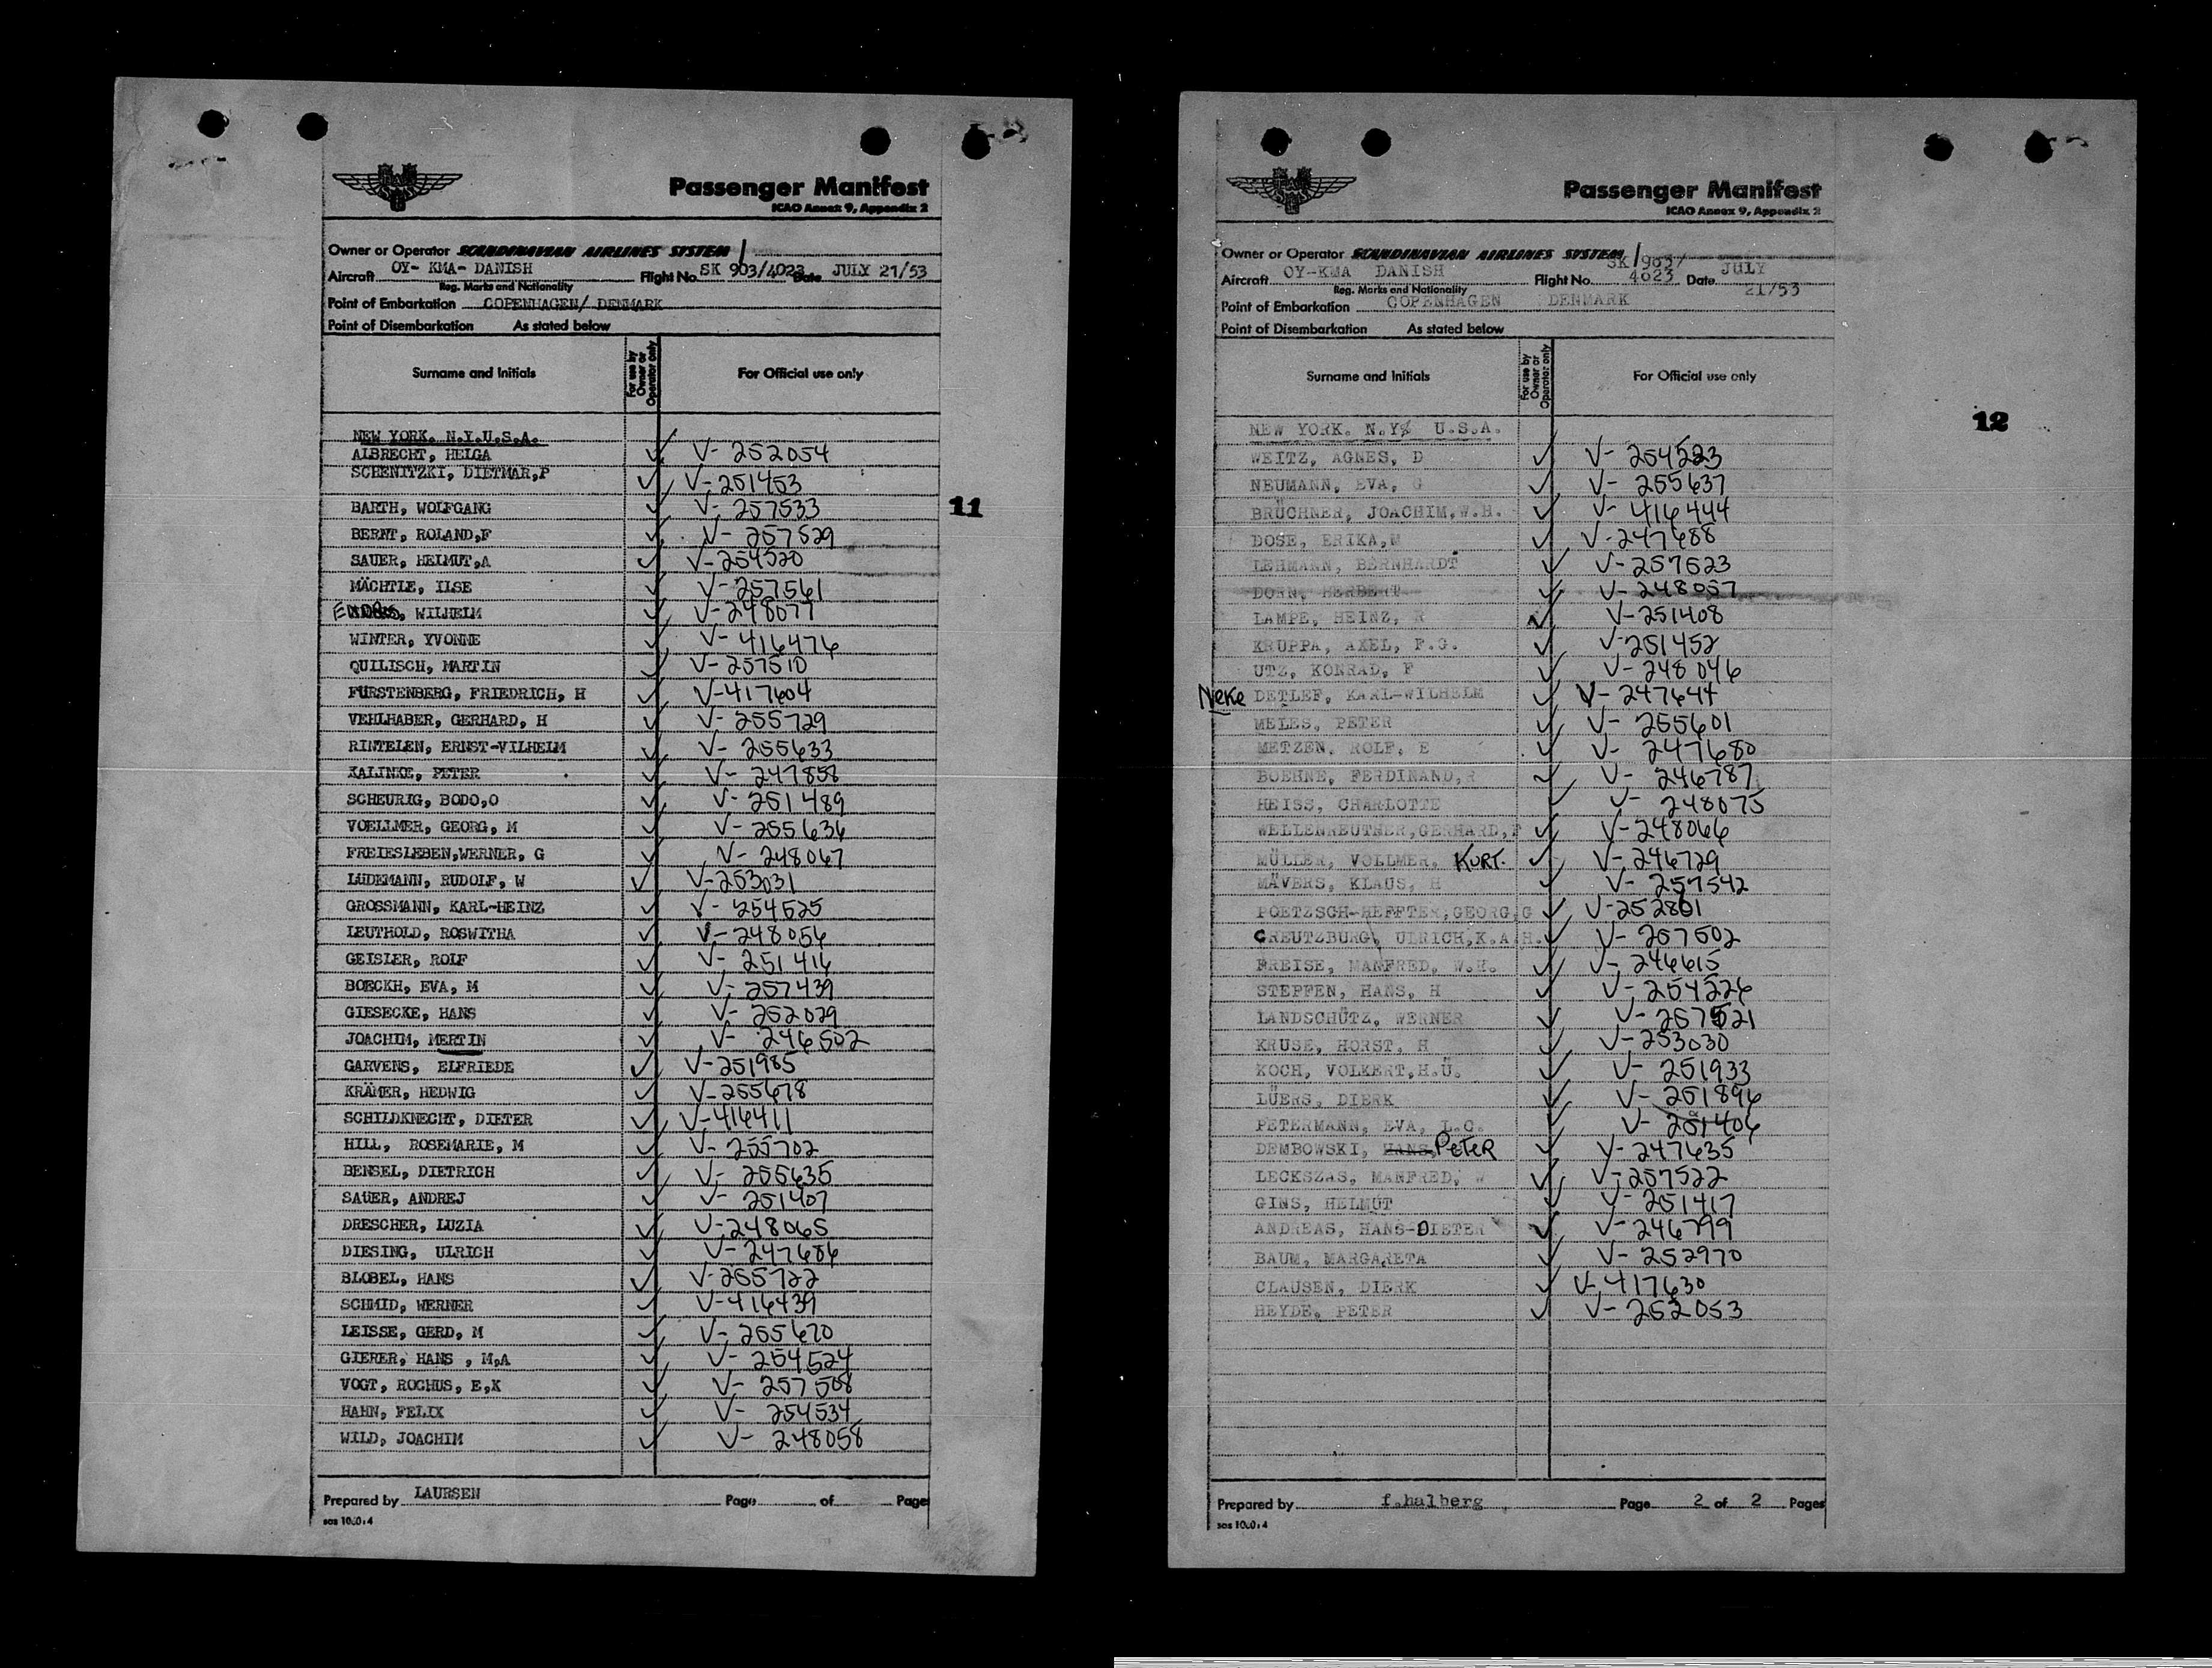 Passenger Manifest
ICAO Annex 9, Appendix 2
Owner or Operator SCANDINAVIAN AIRLINES SYSTEM
Aircraft OY- KMA- DANISH Flight No. SK 903/4023 Date JULY 21/53
Reg. Marks and Nationality
Point of Embarkation COPENHAGEN/ DENMARK
Point of Disembarkation As stated below
Surname and Initials For use by Owner or Operator only For Official use only
NEW YORK. N.Y.U.S.A.
ALBRECHT, HELGA V- 252054
SCHENITZKI, DIETMAR,P V- 251453
11
BARTH, WOLFGANG V- 257533
BERNT, ROLAND,F V- 257529
SAUER, HELMUT,A V-254520
MÄCHTLE, ILSE V-257561
WILHELM V-248077
WINTER, YVONNE V-416476
QUILISCH, MARTIN V-257510
FÜRSTENBERG, FRIEDRICH, H V-417604
VEHLHABER, GERHARD, H V- 255729
RINTELEN, ERNST-VILHELM V- 255633
KALINKE, PETER V- 247858
SCHEURIG, BODO,O V- 251489
VOELLMER, GEORG, M V- 255636
FREIESLEBEN,WERNER, G V- 248067
LÜDEMANN, RUDOLF, W V-253031
GROSSMANN, KARL-HEINZ V- 254525
LEUTHOLD, ROSWITHA V-248056
GEISLER, ROLF V- 251416
BOECKH, EVA, M V- 257439
GIESECKE, HANS V- 252029
JOACHIM, MERTIN V- 246502
GARVENS, ELFRIEDE V-251985
KRÄMER, HEDWIG V-255678
SCHILDKNECHT, DIETER V-416411
HILL, ROSEMARIE, M V- 255702
BENSEL, DIETRICH V- 255635
SAUER, ANDREJ V- 251407
DRESCHER, LUZIA V-248065
DIESING, ULRICH V-247686
BLOBEL, HANS V-255722
SCHMID, WERNER V-416439
LEISSE, GERD, M V- 255670
GIERER, HANS , M,A V- 254524
VOGT, ROCHUS, E,K V- 257508
HAHN, FELIX V- 254534
WILD, JOACHIM V- 248058
Prepared by LAURSEN Page of Pages
Passenger Manifest
ICAO Annex 9, Appendix 2
Owner or Operator SCANDINAVIAN AIRLINES SYSTEM
Aircraft OY-KMA DANISH Flight No. SK 903/ 4023 Date JULY 21/53
Reg. Marks and Nationality
Point of Embarkation COPENHAGEN DENMARK
Point of Disembarkation As stated below
Surname and Initials For use by Owner or Operator only For Official use only
12
NEW YORK. N.Y. U.S.A.
WEITZ, AGNES, D V- 254523
NEUMANN, EVA, G V- 255637
BRÜCHNER, JOACHIM,W.H. V- 416444
DOSE, ERIKA,M V-247688
LEHMANN, BERNHARDT V-257523
DORN, HERBERT V- 248057
LAMPE, HEINZ, R V-251408
KRUPPA, AXEL, F.G. V-251452
UTZ, KONRAD, F V-248046
Neke DETLEF, KARL-WILHELM V-247644
MELES, PETER V- 255601
METZEN, ROLF, E V- 247680
BOEHNE, FERDINAND,R V- 246787
HEISS, CHARLOTTE V- 248075
WELLENREUTHER,GERHARD,P V-248066
MÜLLER, VOLLMER, KURT. V-246729
MÄVERS, KLAUS, H V- 257542
POETZSCH-HEFFTER,GEORG,G V-252801
CREUTZBURG, ULRICH,K.A.H. V- 257502
FREISE, MANFRED, W.H. V- 246615
STEPFEN, HANS, H V-254526
LANDSCHÜTZ, WERNER V- 257521
KRUSE, HORST, H V-253030
KOCH, VOLKERT,H.Ü. V- 251933
LÜERS, DIERK V- 251896
PETERMANN, EVA, L.C. V- 251406
DEMBOWSKI, HANS, PETER V-247635
LECKSZAS, MANFRED, W V-257522
GINS, HELMUT V- 251417
ANDREAS, HANS-DIETER V-246799
BAUM, MARGARETA V- 252970
CLAUSEN, DIERK V-417630
HEYDE, PETER V- 252053
Prepared by f.halberg Page 2 of 2 Pages